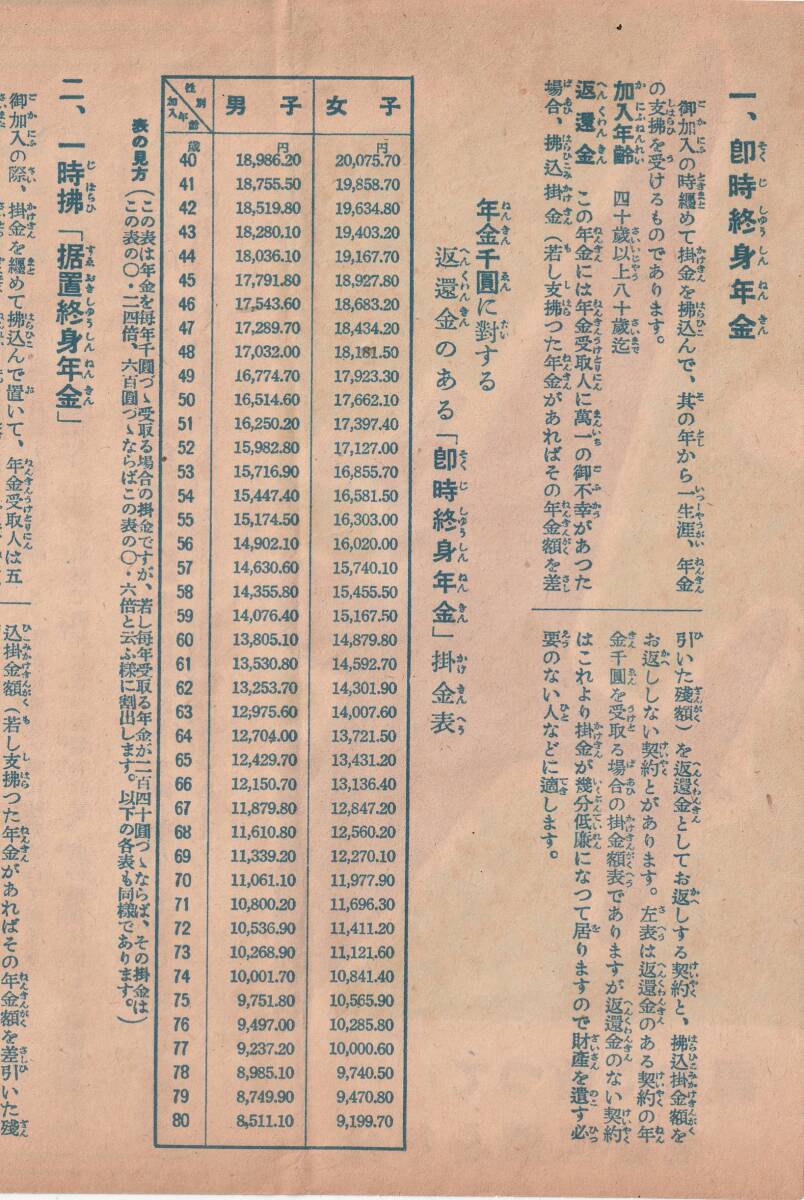 一、卽時終身年金
御加入の時纏めて掛金を拂込んで、其の年から一生涯、年金
の支拂を受けるものであります。
加入年齡 四十歳以上八十歳迄
返還金 この年金には年金受取人に萬一の御不幸があつた
場合、拂込掛金（若し支拂つた年金があればその年金額を差
引いた殘額）を返還金としてお返しする契約と、拂込掛金額を
お返ししない契約とがあります。左表は返還金のある契約の年
金千圓を受取る場合の掛金額表でありますが返還金のない契約
はこれより掛金が幾分低廉になつて居りますので財產を遺す必
要のない人などに適します。
年金千圓に對する
返還金のある「卽時終身年金」掛金表
性別 加入年齡 男子 女子
歳 円 円
40 18,986.20 20,075.70
41 18,755.50 19,858.70
42 18,519.80 19,634.80
43 18,280.10 19,403.20
44 18,036.10 19,167.70
45 17,791.80 18,927.80
46 17,543.60 18,683.20
47 17,289.70 18,434.20
48 17,032.00 18,181.50
49 16,774.70 17,923.30
50 16,514.60 17,662.10
51 16,250.20 17,397.40
52 15,982.80 17,127.00
53 15,716.90 16,855.70
54 15,447.40 16,581.50
55 15,174.50 16,303.00
56 14,902.10 16,020.00
57 14,630.60 15,740.10
58 14,355.80 15,455.50
59 14,076.40 15,167.50
60 13,805.10 14,879.80
61 13,530.80 14,592.70
62 13,253.70 14,301.90
63 12,975.60 14,007.60
64 12,704.00 13,721.50
65 12,429.70 13,431.20
66 12,150.70 13,136.40
67 11,879.80 12,847.20
68 11,610.80 12,560.20
69 11,339.20 12,270.10
70 11,061.10 11,977.90
71 10,800.20 11,696.30
72 10,536.90 11,411.20
73 10,268.90 11,121.60
74 10,001.70 10,841.40
75 9,751.80 10,565.90
76 9,497.00 10,285.80
77 9,237.20 10,000.60
78 8,985.10 9,740.50
79 8,749.90 9,470.80
80 8,511.10 9,199.70
表の見方（この表は年金を每年千圓づゝ受取る場合の掛金ですが、若し每年受取る年金が二百四十圓づゝならば、その掛金は
この表の〇・二四倍、六百圓づゝならばこの表の〇・六倍と云ふ樣に割出します。以下の各表も同樣であります。）
二、一時拂「据置終身年金」
御加入の際、掛金を纏めて拂込んで置いて、年金受取人は五
込掛金額（若し支拂つた年金があればその年金額を差引いた殘